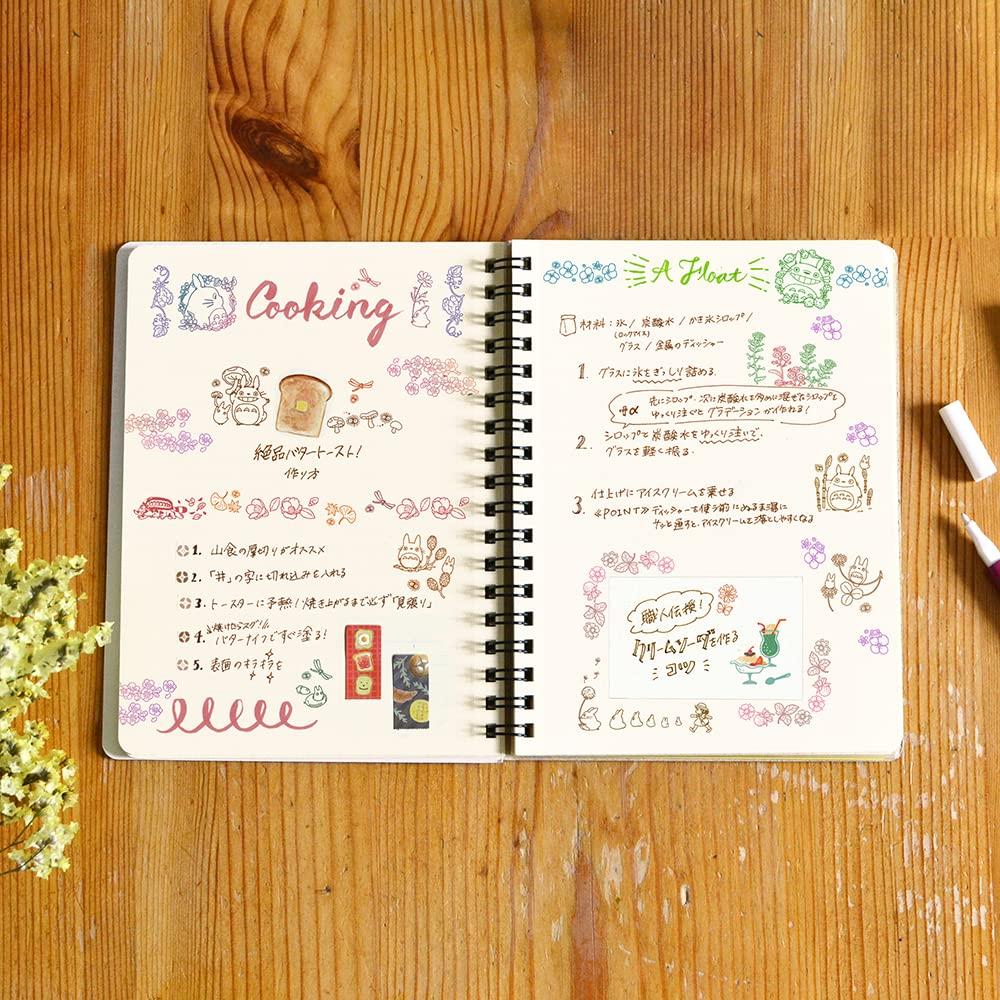 Cooking
絶品バタートースト!
作り方
1. 山食の厚切りがオススメ
2. 「井」の字に切れ込みを入れる
3. トースターに予熱!焼き上がるまで必ず「見張り」
焼けたらスグ!!
4. バターナイフですぐ塗る!
5. 表面のキラキラを
A Float
材料:氷/炭酸水/かき氷シロップ/
(ロックアイス)
グラス/金属のディッシャー
1. グラスに氷をぎっしり詰める.
+α 先にシロップ・次に炭酸水を多めに混ぜたシロップを
ゆっくり注ぐとグラデーションが作れる!
2. シロップと炭酸水をゆっくり注いで、
グラスを軽く振る.
3. 仕上げにアイスクリームを乗せる
≪POINT≫ディッシャーを使う前にぬるま湯に
サッと通すと、アイスクリームを落としやすくなる
職人伝授!
クリームソーダを作る
コツ